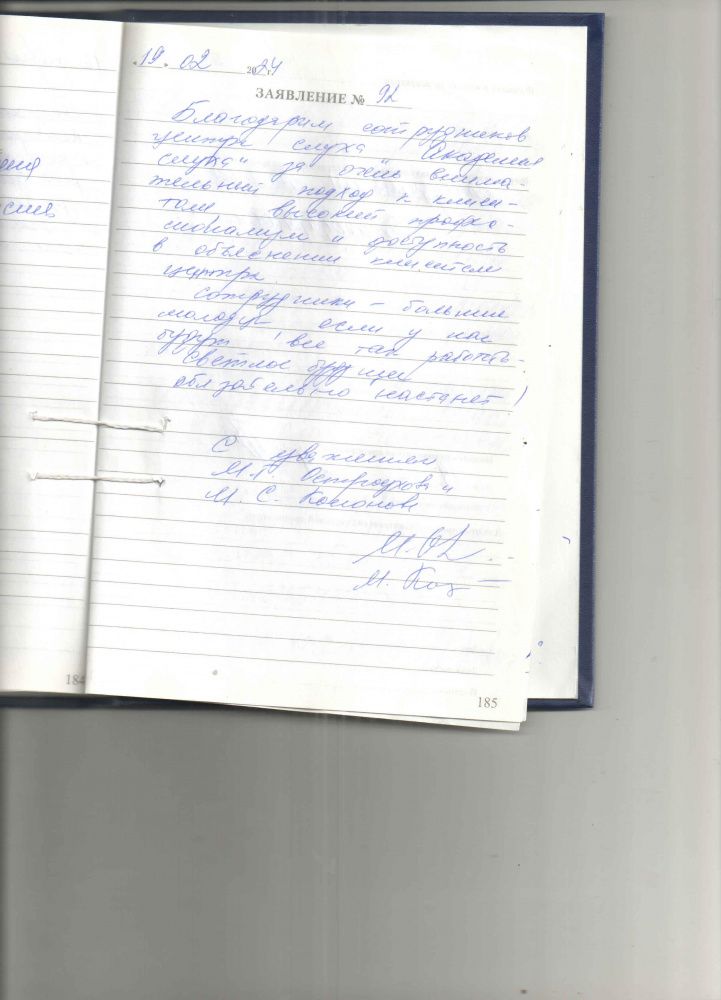 19. 02 2024 г.
ЗАЯВЛЕНИЕ № 92
Благодарим сотрудников
центра слуха "Академия
слуха" за очень внима-
тельный подход к клиен-
там высокий профес-
сионализм и доступность
в объяснении клиентам
центра.
Сотрудники - большие
молодцы если у нас
будут все так работать-
светлое будущее
обязательно настанет!
С уважением
М. С.
М.
184
185